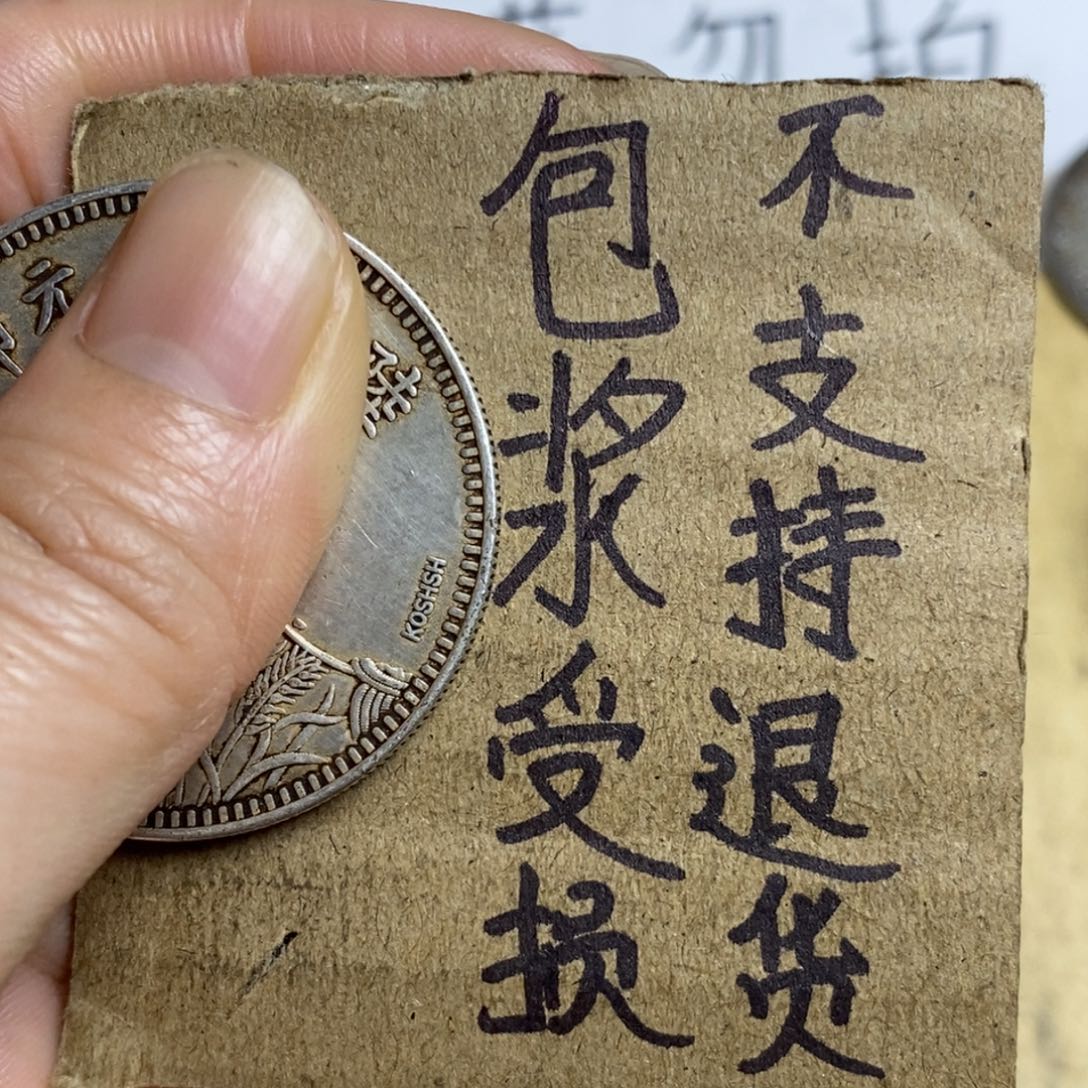 不支持退货
包浆受损
勿拍
元
KOSHSH